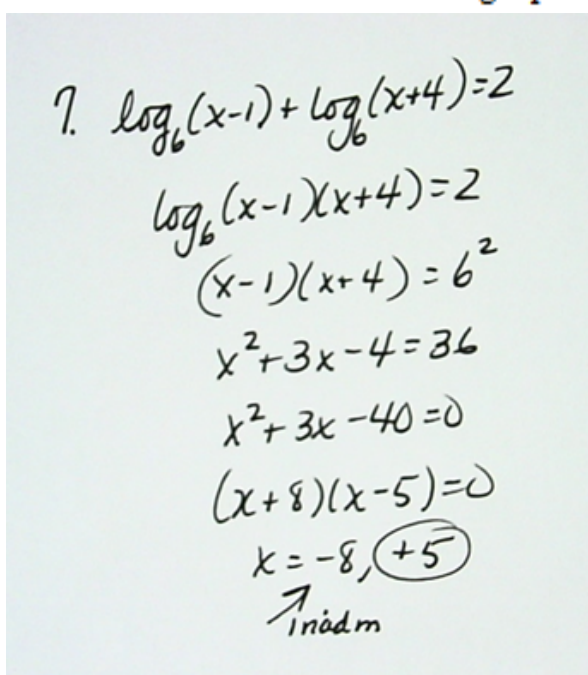 7. log₆(x-1) + log₆(x+4) = 2
log₆(x-1)(x+4) = 2
(x-1)(x+4) = 6²
x² + 3x - 4 = 36
x² + 3x - 40 = 0
(x+8)(x-5) = 0
x = -8, +5
inadm